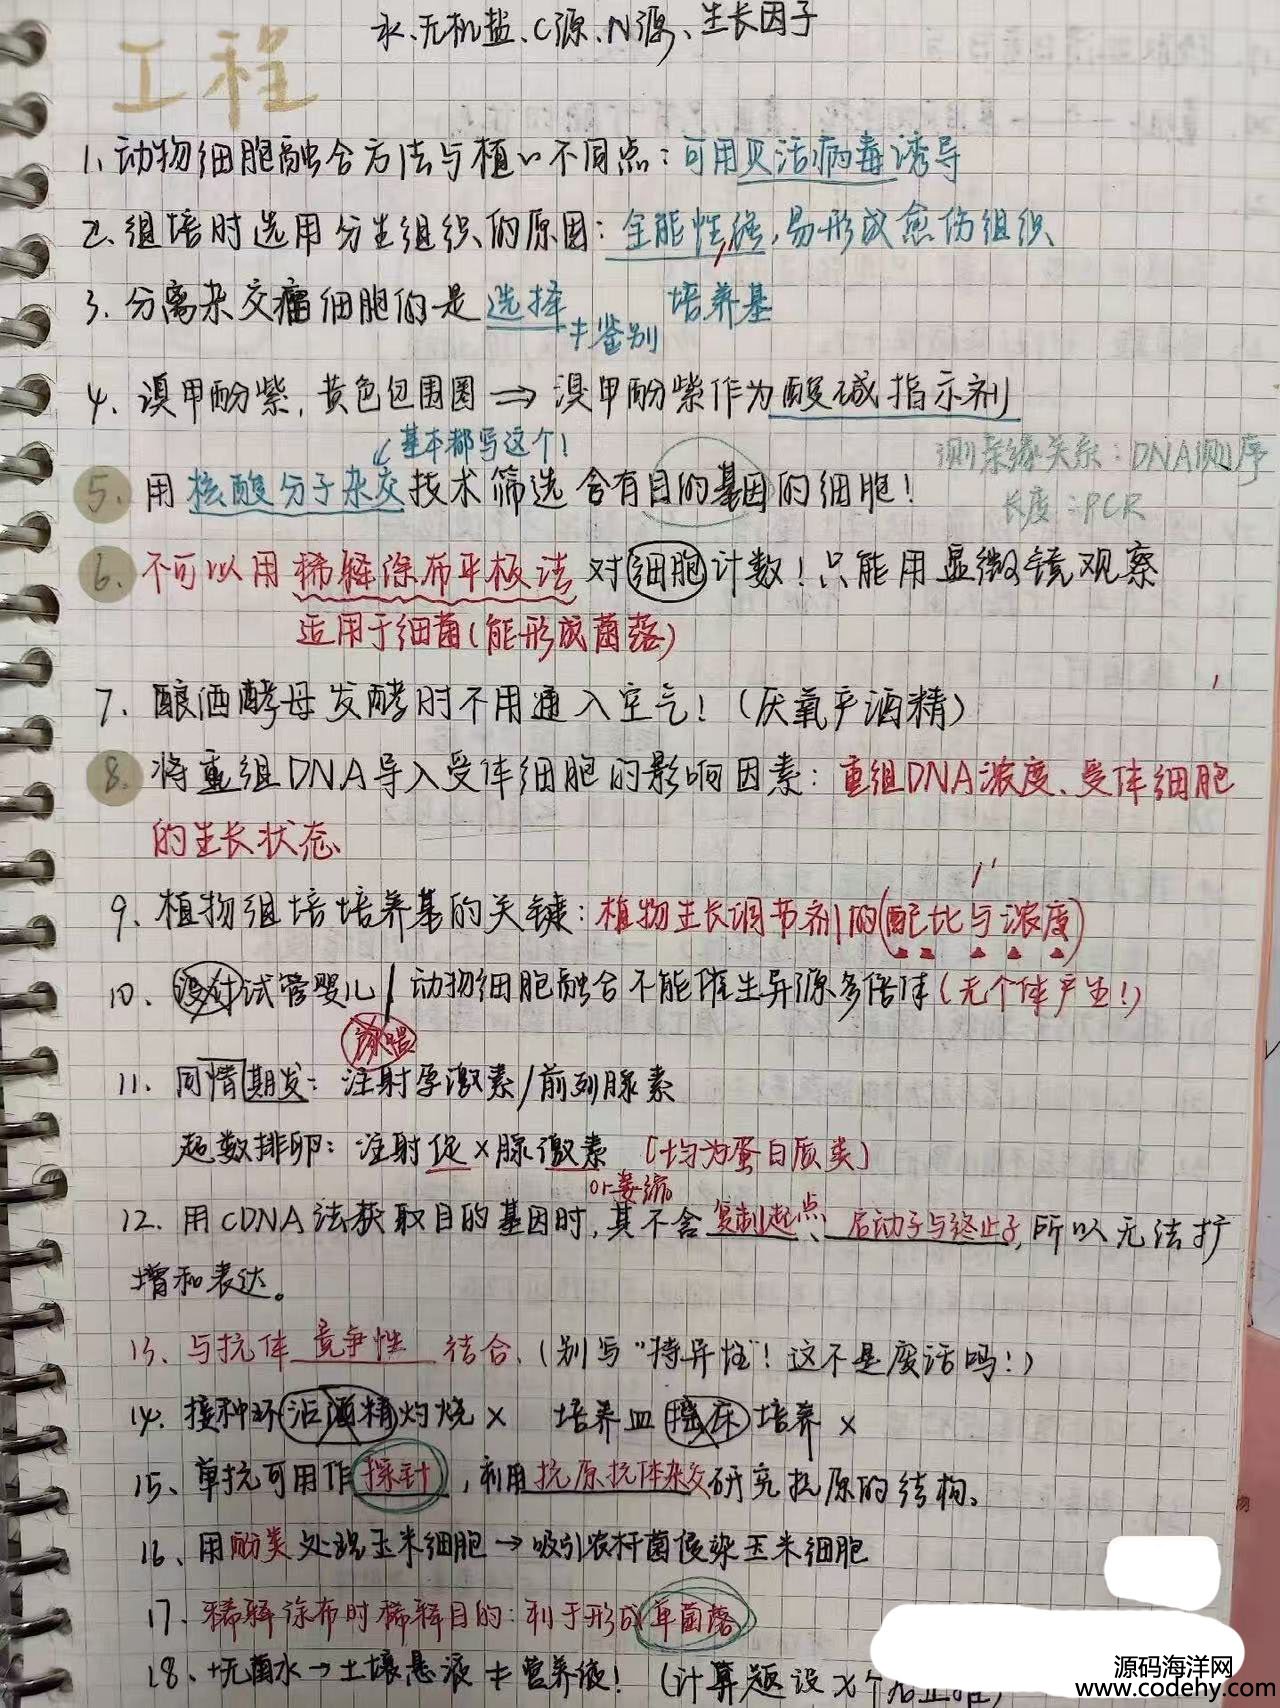 水、无机盐、C源、N源、生长因子
工程
1. 动物细胞融合方法与植〃不同点：可用灭活病毒诱导
2. 组培时选用分生组织的原因：全能性强，易形成愈伤组织
3. 分离杂交瘤细胞的是选择 培养基
≠鉴别
4. 溴甲酚紫，黄色包围圈 ⇒ 溴甲酚紫作为酸碱指示剂
基本都写这个！
测亲缘关系：DNA测序
5. 用核酸分子杂交技术筛选含有目的基因的细胞！
长度：PCR
6. 不可以用稀释涂布平板法对细胞计数！只能用显微镜观察
适用于细菌（能形成菌落）
7. 酿酒酵母发酵时不用通入空气！（厌氧产酒精）
8. 将重组DNA导入受体细胞的影响因素：重组DNA浓度、受体细胞
的生长状态
9. 植物组培培养基的关键：植物生长调节剂的（配比与浓度）
10. 试管婴儿/动物细胞融合不能催生异源多倍体（无个体产生！）
11. 同情期发：注射孕激素/前列腺素
超数排卵：注射促×腺激素（均为蛋白质类）
or萎缩
12. 用cDNA法获取目的基因时，其不含复制起点、启动子与终止子，所以无法扩
增和表达。
13. 与抗体竞争性结合、（别写“特异性”！这不是废话吗！）
14. 接种环沾酒精灼烧 × 培养皿摇床培养 ×
15. 单抗可用作探针，利用抗原抗体杂交研究抗原的结构。
16. 用酚类处理玉米细胞→吸引农杆菌侵染玉米细胞
17. 稀释涂布时稀释目的：利于形成单菌落
18. +无菌水→土壤悬液≠营养液！（计算题设x个
源码海洋网
www.codehy.com